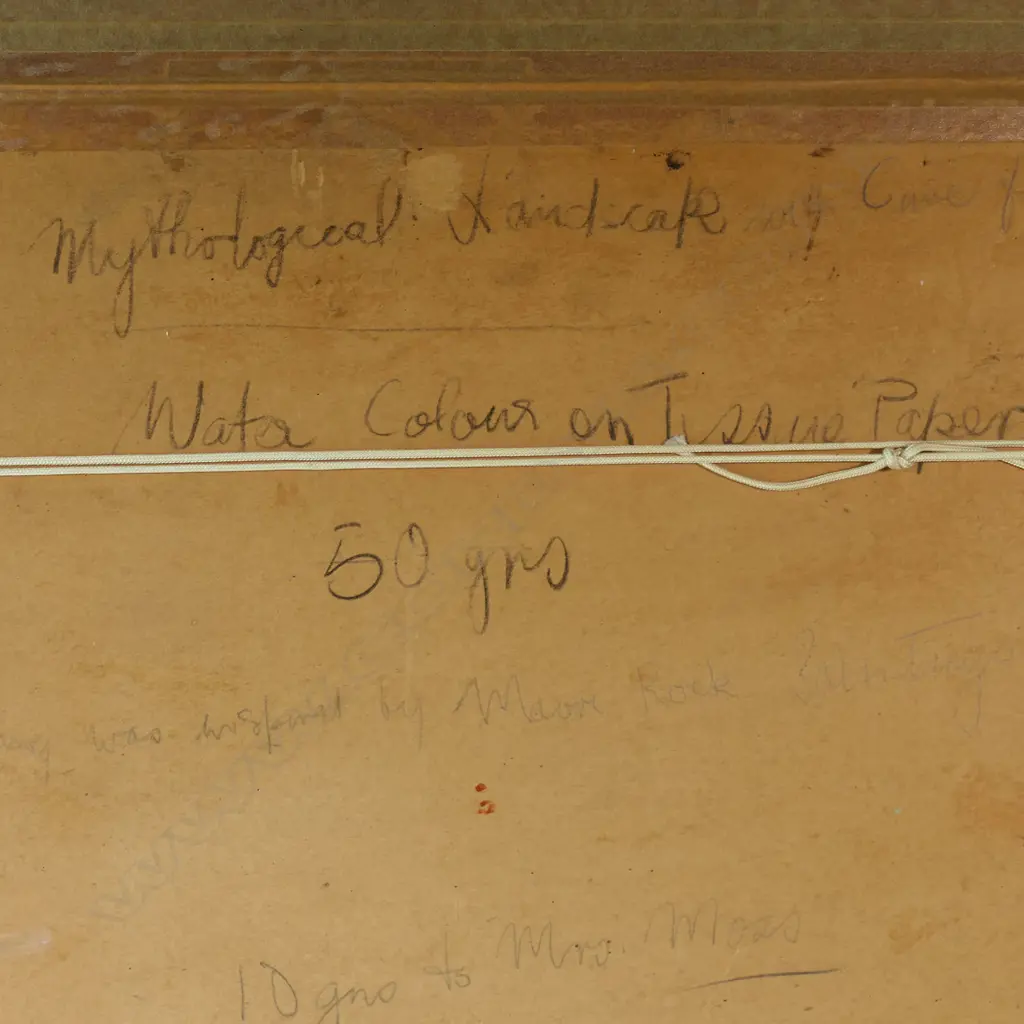 Mythological Landscape with Cave
Water Colour on Tissue Paper
50 gns
was inspired by Maori Rock Paintings
10 gns to Mrs. Moss